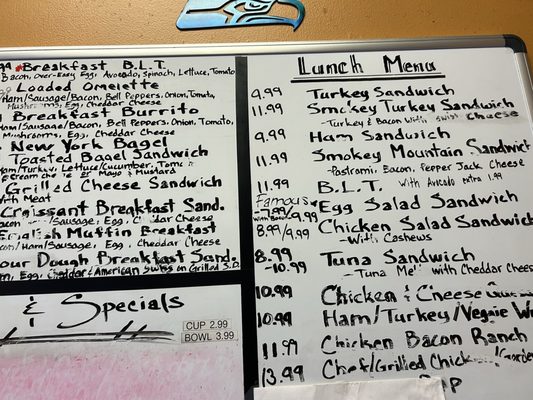 .99 *Breakfast B.L.T.
Bacon, Over-Easy Egg, Avocado, Spinach, Lettuce, Tomato
Loaded Omelette
Ham/Sausage/Bacon, Bell Peppers, Onion, Tomato,
Mushrooms, Egg, Cheddar Cheese
Breakfast Burrito
Ham/Sausage/Bacon, Bell Peppers, Onion, Tomato,
Mushrooms, Egg, Cheddar Cheese
New York Bagel
Toasted Bagel Sandwich
Ham/Turkey, Lettuce/Cucumber,
Cream cheese or Mayo & Mustard
Grilled Cheese Sandwich
with Meat
Croissant Breakfast Sand.
/Sausage, Egg, Cheddar Cheese
English Muffin Breakfast
Bacon/Ham/Sausage, Egg, Cheddar Cheese
our Dough Breakfast Sand.
Egg, Cheddar & American Swiss on Grilled S.D.
& Specials
CUP 2.99
BOWL 3.99
Lunch Menu
9.99 Turkey Sandwich
11.99 Smokey Turkey Sandwich
-Turkey & Bacon with Swiss Cheese
9.99 Ham Sandwich
11.99 Smokey Mountain Sandwich
-Pastromi, Bacon, Pepper Jack Cheese
11.99 B.L.T. with Avocado extra 1.99
Famous
7.99/9.99 Egg Salad Sandwich
with Bacon
8.99/9.99 Chicken Salad Sandwich
-With Cashews
8.99 Tuna Sandwich
-10.99 -Tuna Melt with Cheddar Chees
10.99 Chicken & Cheese
10.99 Ham/Turkey/Veggie W
11.99 Chicken Bacon Ranch
13.99 Chef/Grilled Chicken/Garde